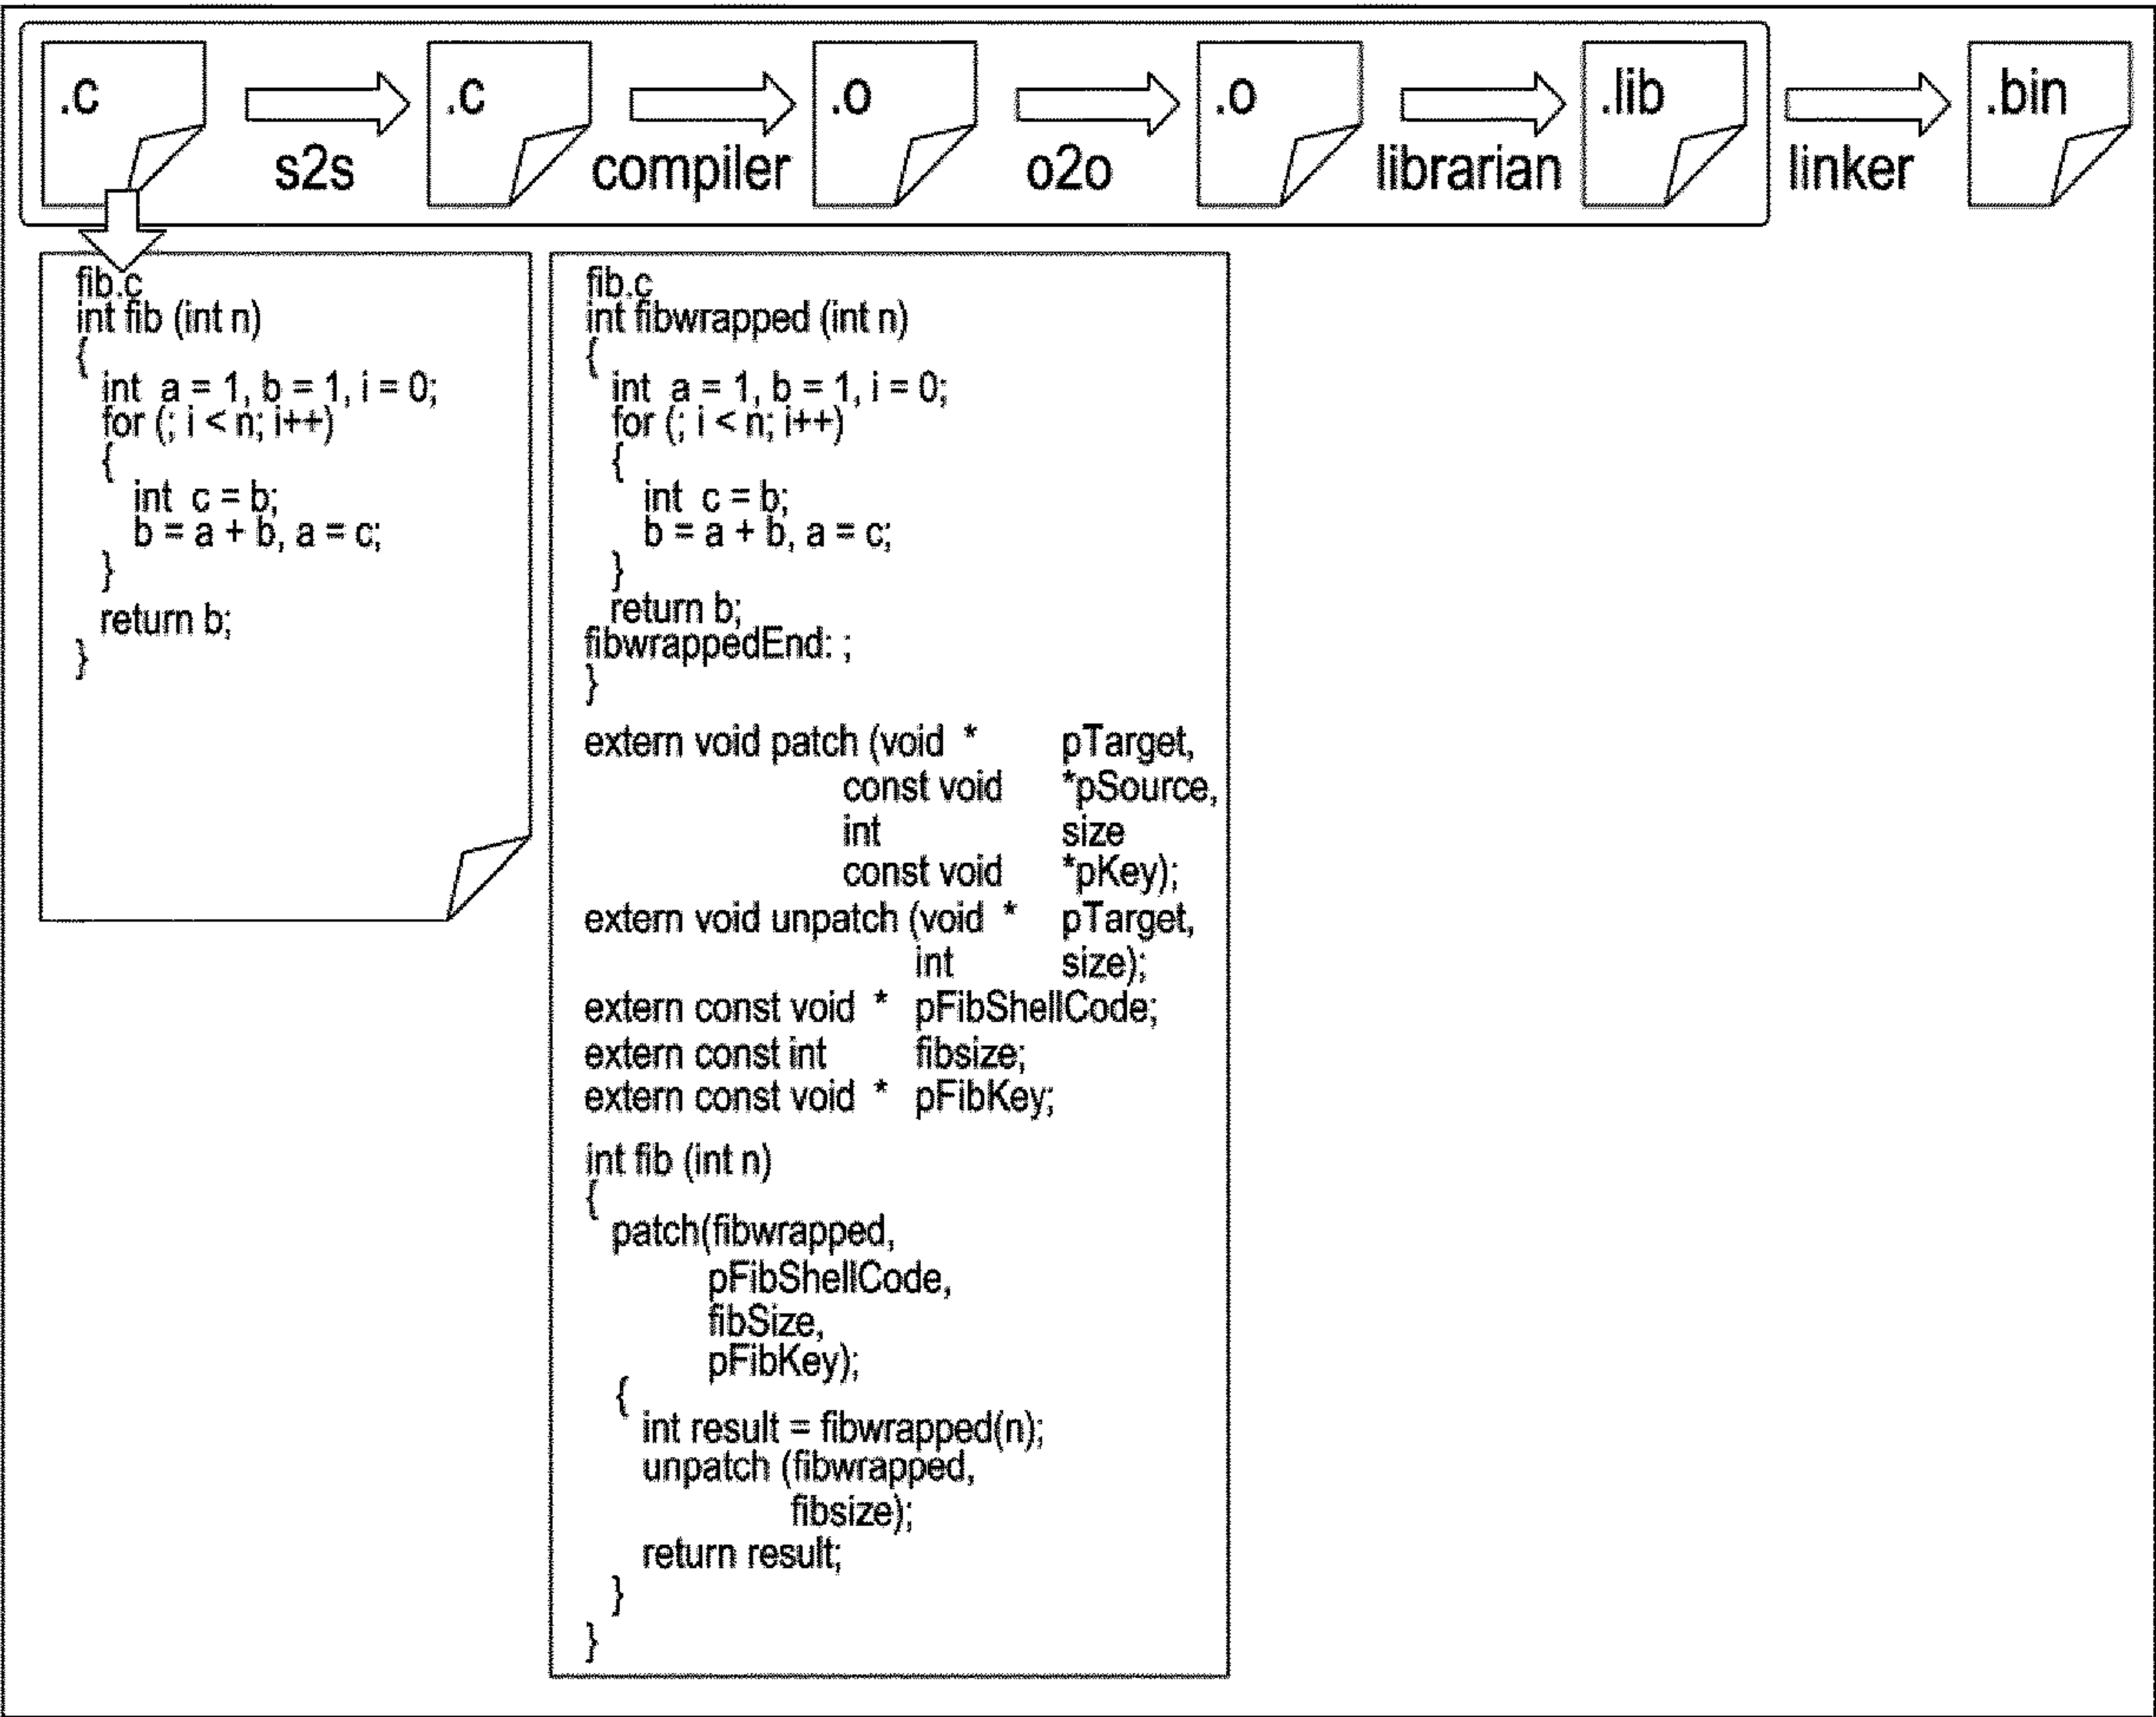 .c .c .o .o .lib .bin
s2s compiler o2o librarian linker
fib.c
int fib (int n)
{
int a = 1, b = 1, i = 0;
for (; i < n; i++)
{
int c = b;
b = a + b, a = c;
}
return b;
}
fib.c
int fibwrapped (int n)
{
int a = 1, b = 1, i = 0;
for (; i < n; i++)
{
int c = b;
b = a + b, a = c;
}
return b;
fibwrappedEnd: ;
}
extern void patch (void * pTarget,
const void *pSource,
int size
const void *pKey);
extern void unpatch (void * pTarget,
int size);
extern const void * pFibShellCode;
extern const int fibsize;
extern const void * pFibKey;
int fib (int n)
{
patch(fibwrapped,
pFibShellCode,
fibSize,
pFibKey);
{
int result = fibwrapped(n);
unpatch (fibwrapped,
fibsize);
return result;
}
}